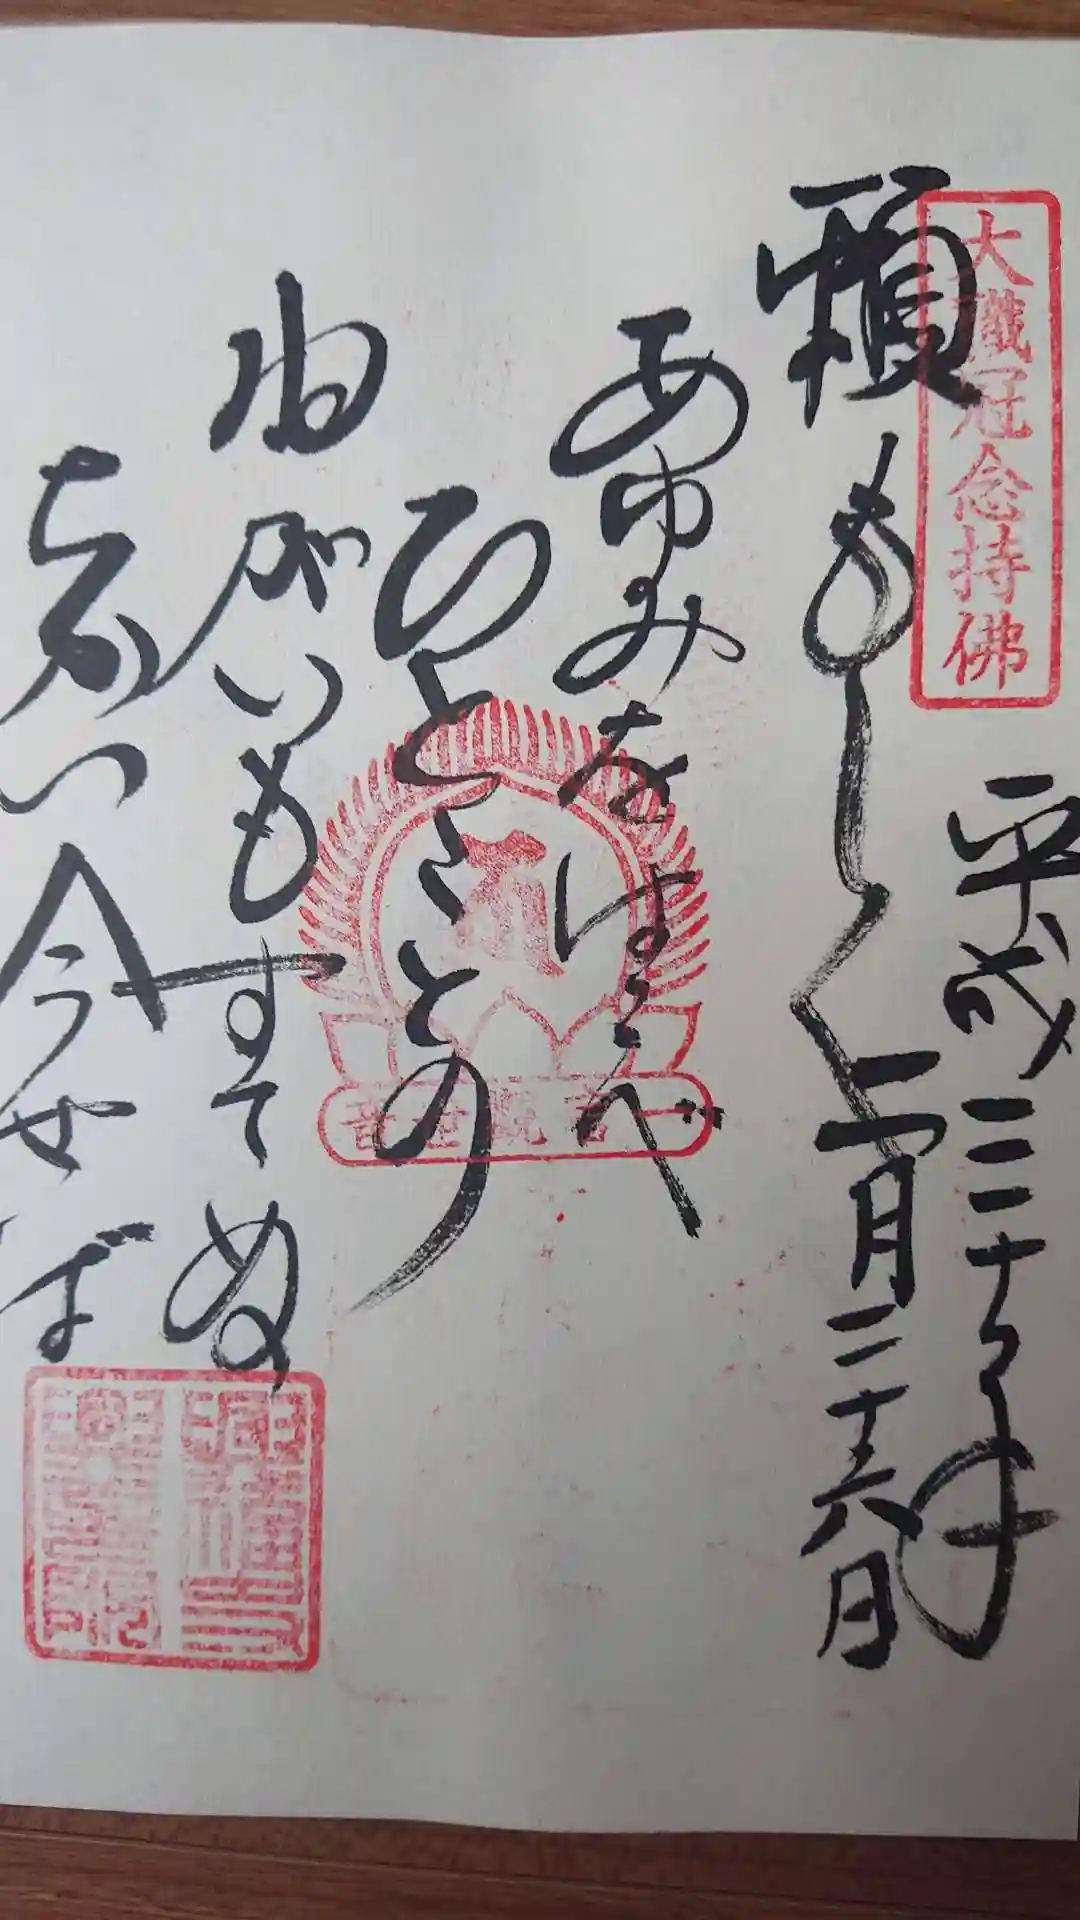 大織冠念持佛
平成三十年
二月二十六日
頼もしく
あゆみをはこべ
ひとことの
ねがいもすてぬ
ちかい今せば
一言観世音